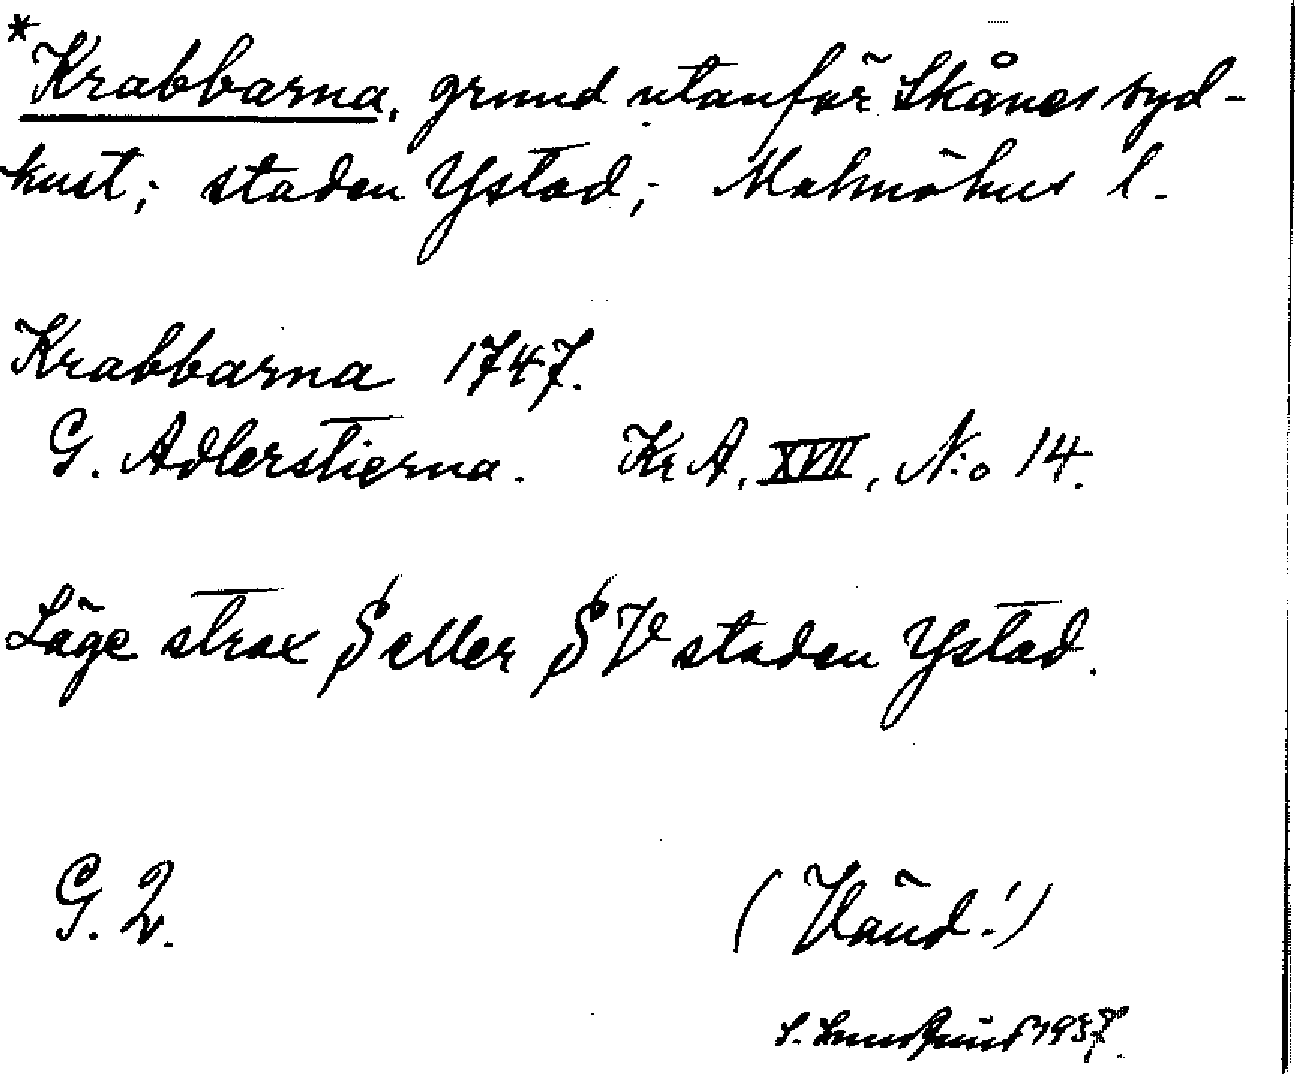 *Krabbarna, grund utanför Skånes syd-
kust; staden Ystad; Malmöhus l.
Krabbarna 1747.
G. Adlerstierna. KrA, XVII, N:o 14.
Läge strax S eller SV staden Ystad.
G. 2.
(Vänd!)
S. 1937.